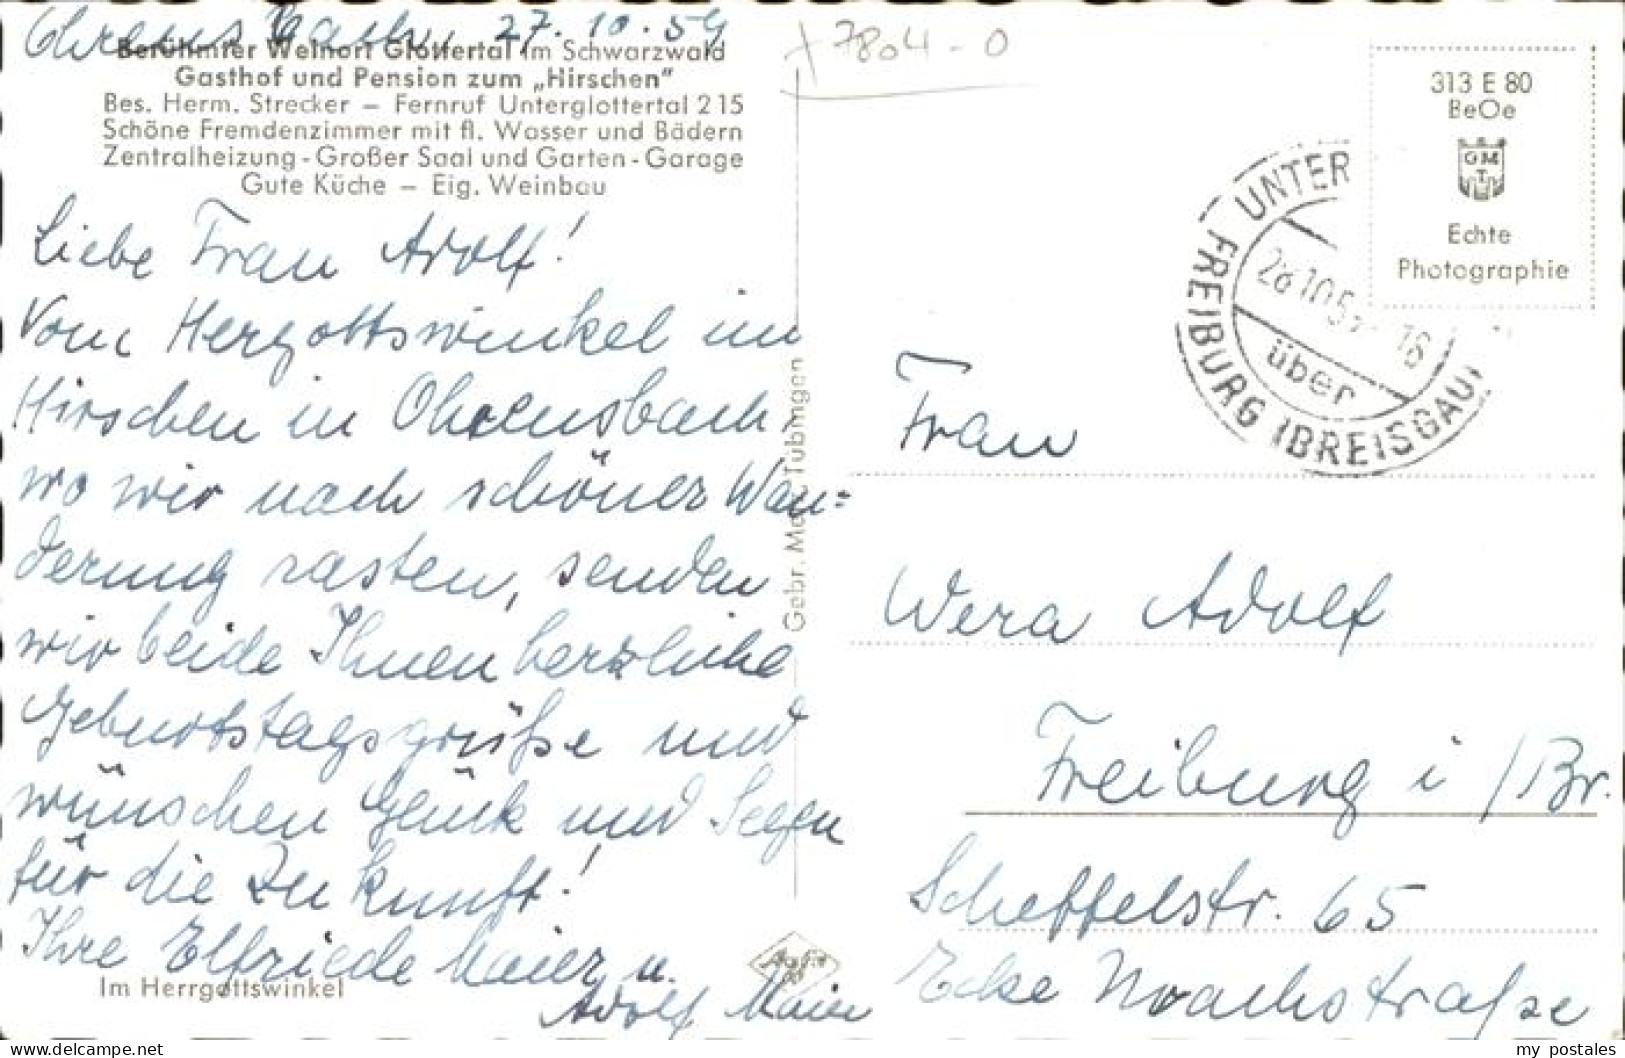 Ohrensbach, 27.10.54
Berühmter Weinort Glottertal im Schwarzwald
Gasthof und Pension zum „Hirschen"
Bes. Herm. Strecker – Fernruf Unterglottertal 215
Schöne Fremdenzimmer mit fl. Wasser und Bädern
Zentralheizung - Großer Saal und Garten - Garage
Gute Küche – Eig. Weinbau
Liebe Frau Adolf!
Vom Hergottswinkel im
Hirschen in Ohrensbach,
wo wir nach schöner Wan=
derung rasten, senden
wir beide Ihnen herzliche
Geburtstagsgrüße und
wünschen Glück und Segen
für die Zukunft!
Ihre Elfriede Maier u.
Adolf Maier
Im Herrgottswinkel
Gebr. Metz, Tübingen
Agfa
7804-0
313 E 80
BeOe
GM
T
Echte
Photographie
UNTER
FREIBURG (BREISGAU)
28.10.5 18
über
Frau
Wera Adolf
Freiburg i/Br.
Scheffelstr. 65
Ecke Noachstraße
my postales
delcampe.net